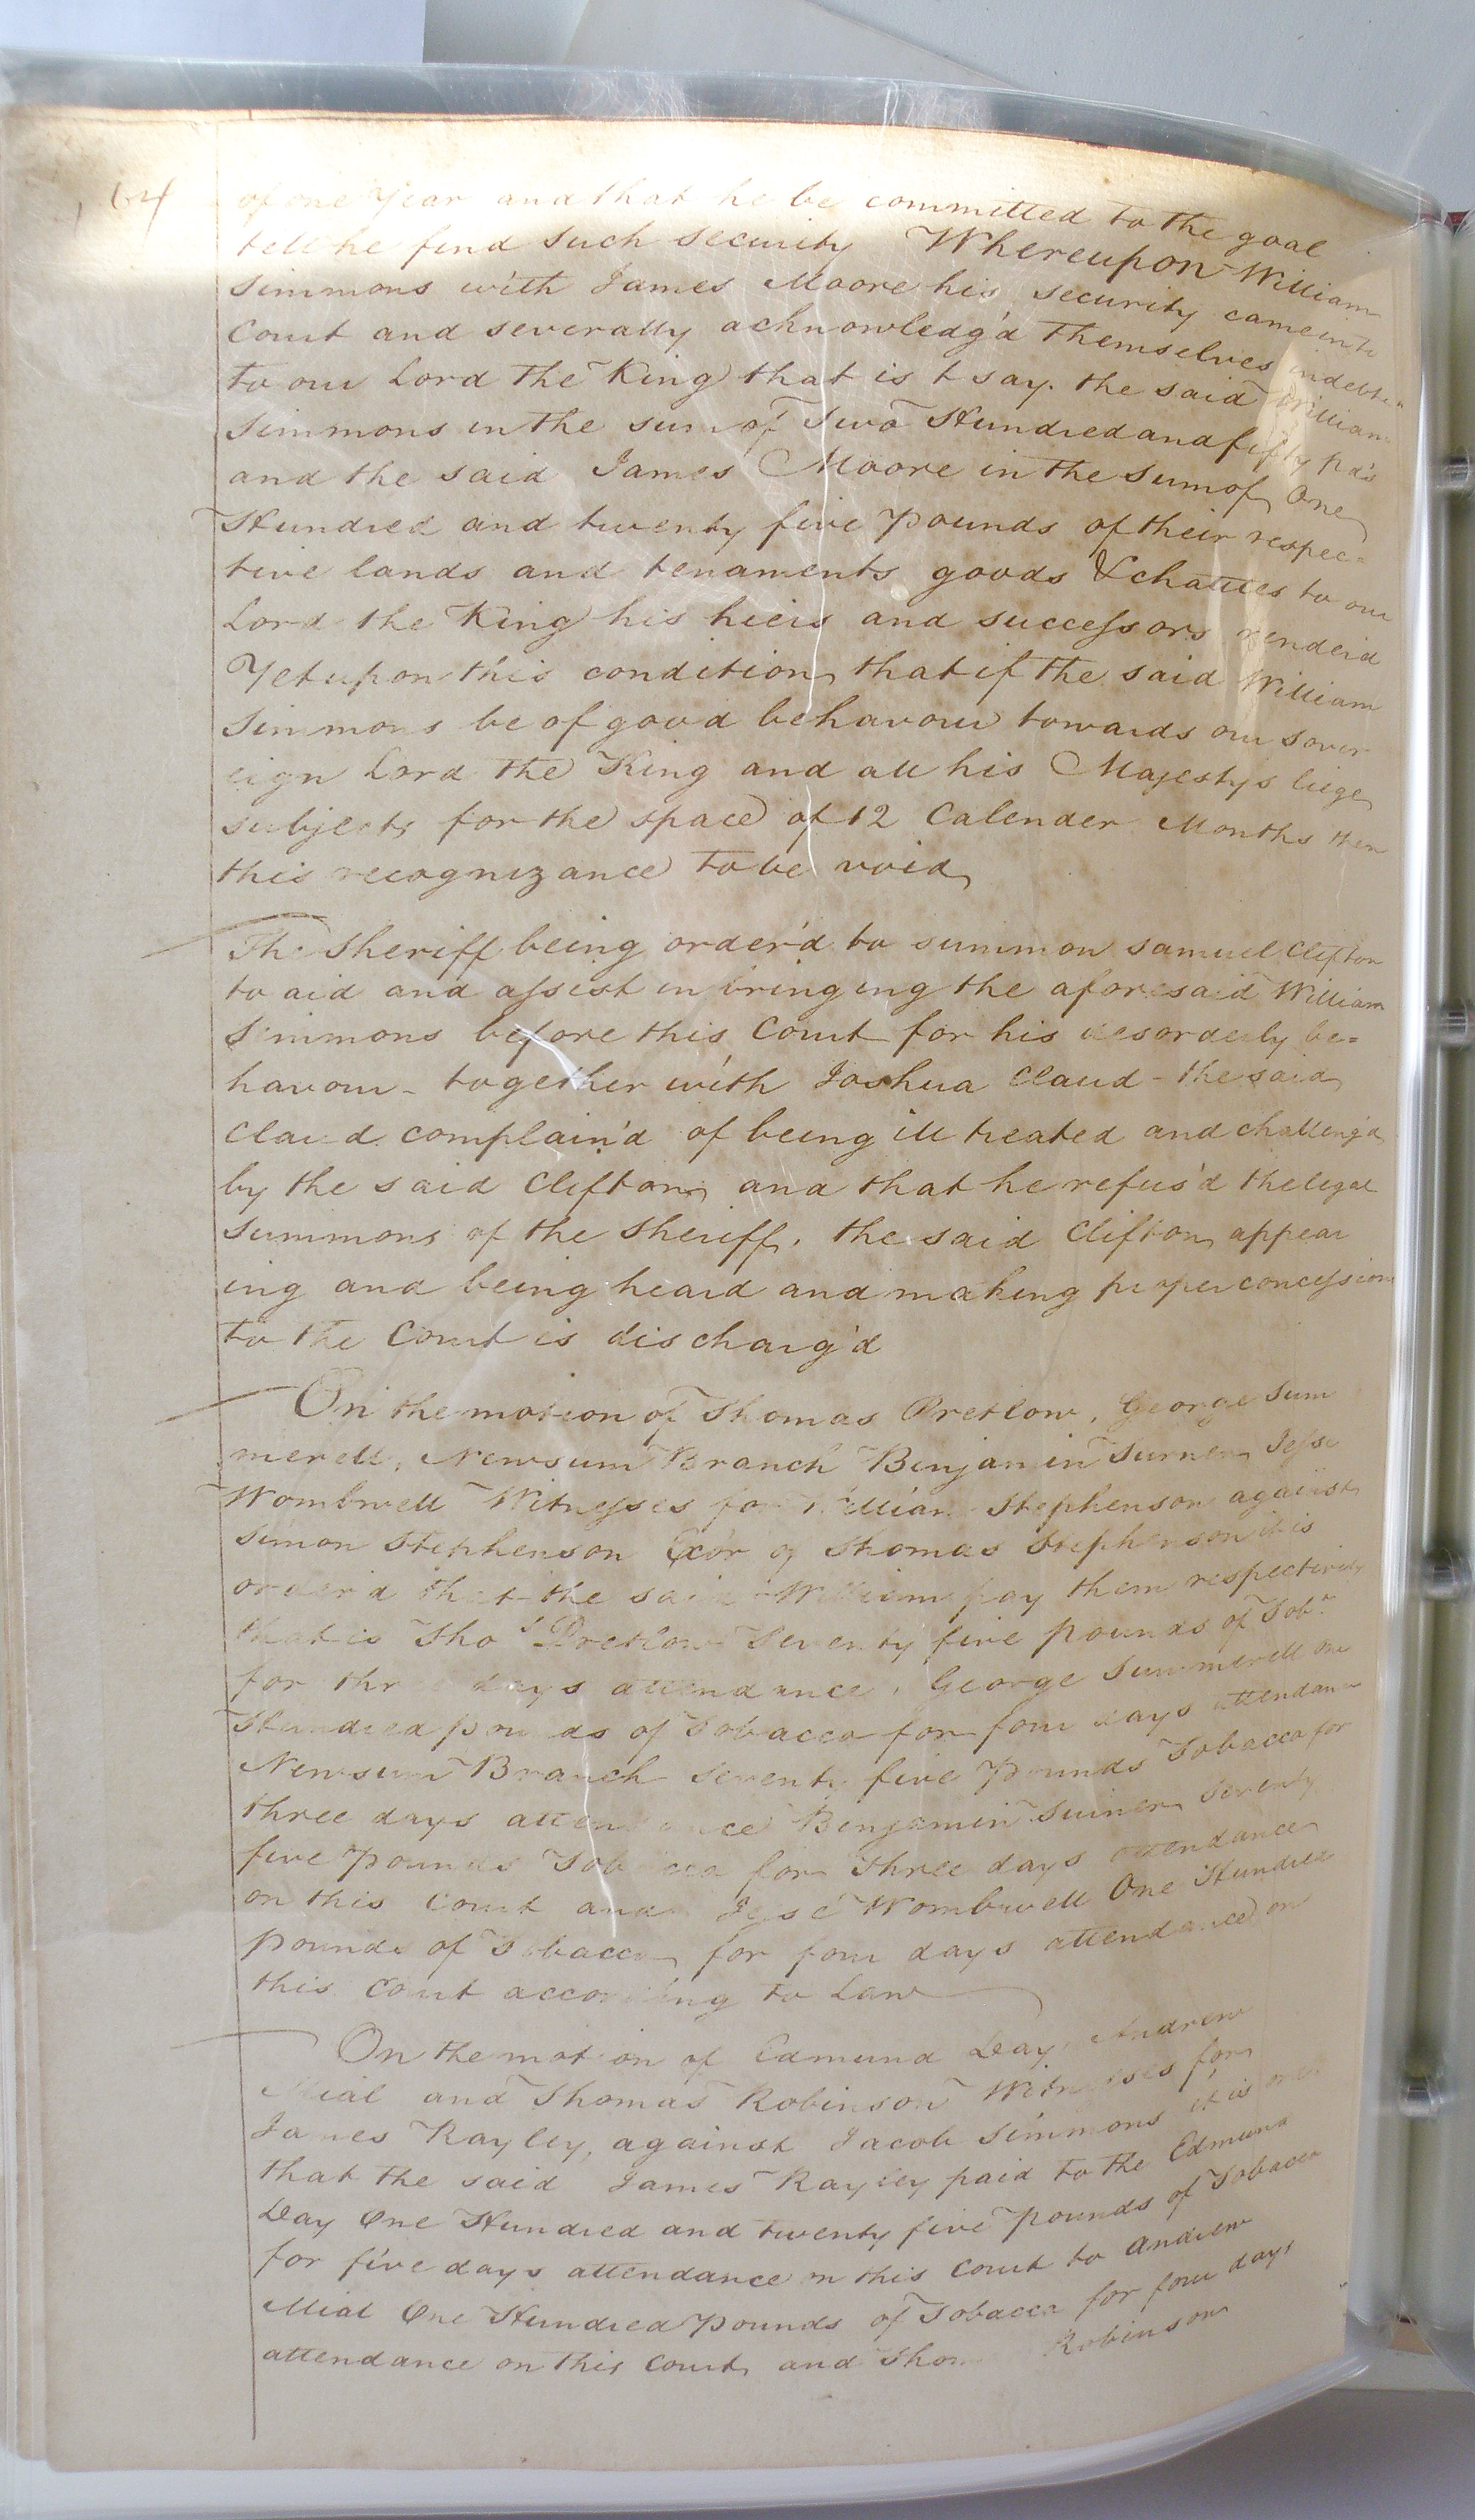 64
of one Year and that he be committed to the goal
till he find such security Whereupon William
Simmons with James Moore his security came into
Court and severally acknowledg'd themselves indebted
to our Lord the King that is t say. the said William
Simmons in the sum of Two Hundred and fifty pds
and the said James Moore in the sum of One
Hundred and twenty five pounds of their respec=
tive lands and tenaments goods & chattles to our
Lord the King his heirs and successors renderd
Yet upon this condition that if the said William
Simmons be of good behavour towards our sover
eign Lord the King and all his Majestys liege
subjects for the space of 12 Calender Months then
this recognizance to be void
The Sheriff being order'd to summon Samuel Clifton
to aid and assist in bringing the aforesaid William
Simmons before this Court for his desorderly be=
havour - together with Joshua Claud - the said
Claud complain'd of being ill treated and challeng'd
by the said Clifton and that he refus'd the legal
summons of the Sheriff, the said Clifton appear
ing and being heard and making proper concession
to the Court is discharg'd
On the motion of Thomas Pretlow, George Sum
merell, Newsum Branch Benjamin Turner Jesse
Wombwell Witnesses for William Stephenson against
Simon Stephenson Exor of Thomas Stephenson it is
order'd that the said William pay them respectively
that is Thos Pretlow Seventy five pounds of Tobo
for three days attendance, George Summerell one
Hundred pounds of Tobacco for four days attendance
Newsum Branch Seventy five Pounds Tobacco for
three days attendance Benjamin Turner Seventy
five Pounds Tobacco for Three days attendance
on this Court and Jesse Wombwell One Hundred
pounds of Tobacco for four days attendance on
this Court according to Law
On the motion of Edmund Day, Andrew
Mial and Thomas Robinson Witnesses for
James Rayley, against Jacob Simmons it is ord
that the said James Rayley paid to the Edmund
Day One Hundred and twenty five pounds of Tobacco
for five days attendance on this Court to Andrew
Mial One Hundred Pounds of Tobacco for four days
attendance on this Court and Thom Robinson